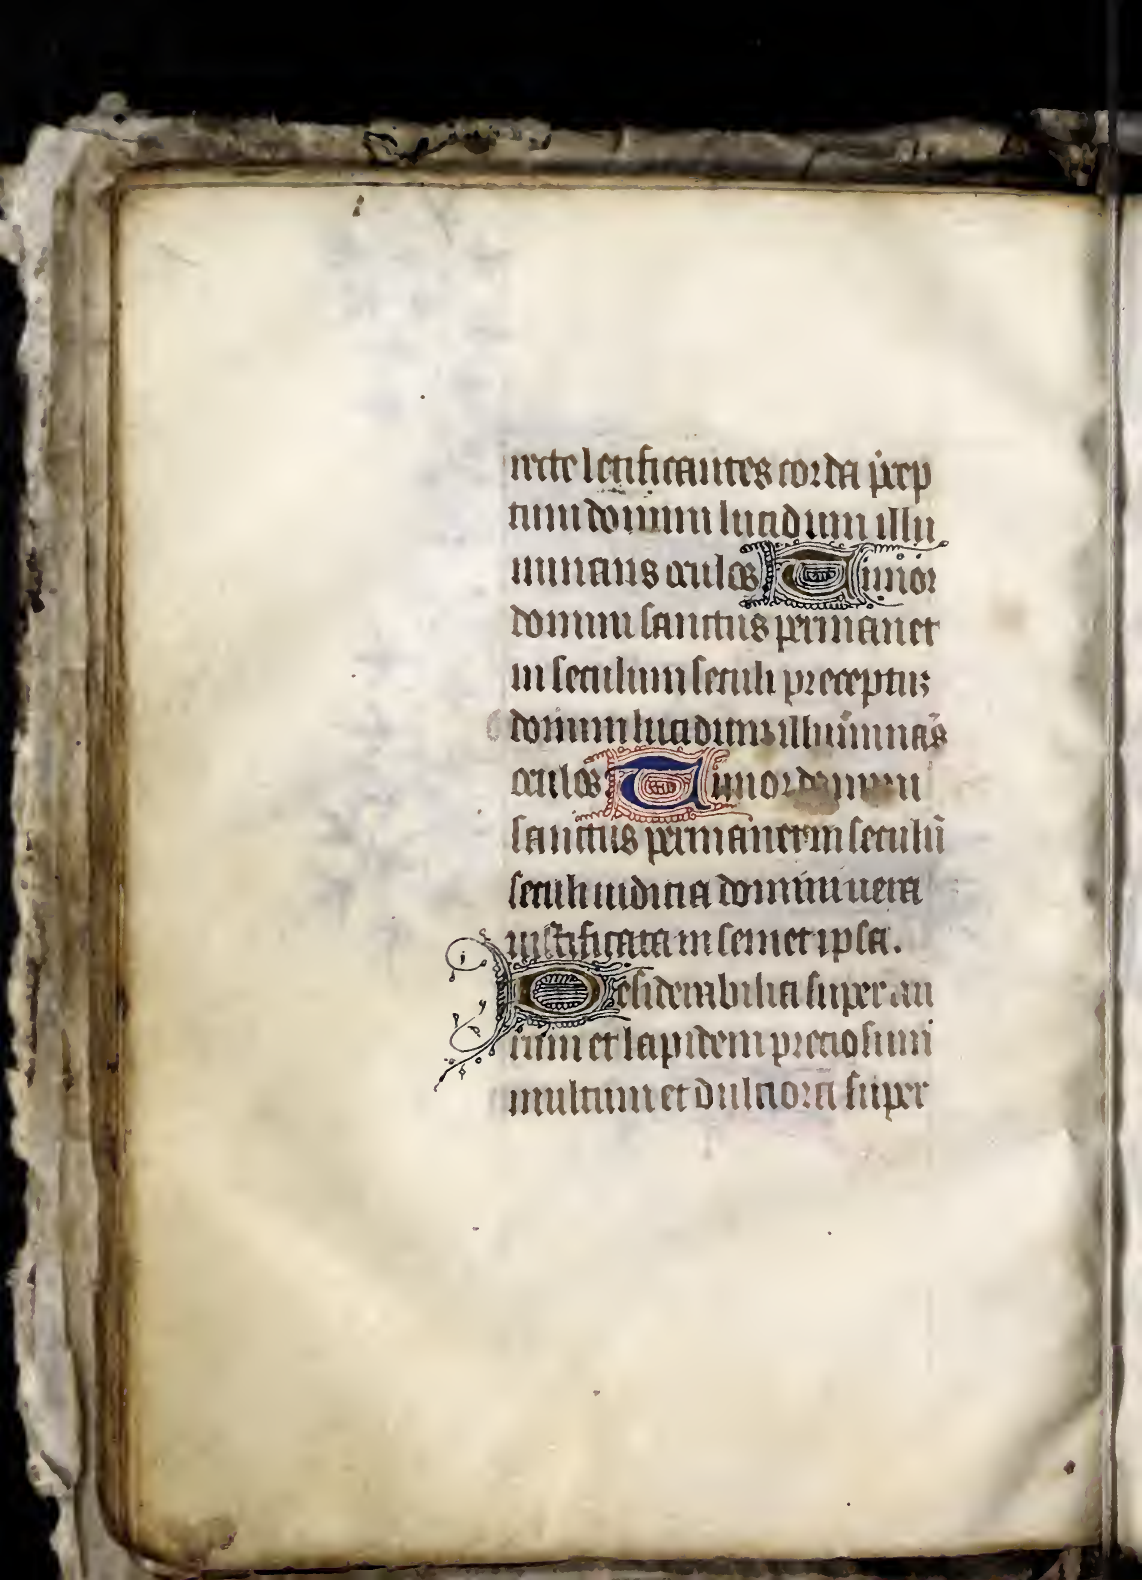 recte letificantes corda precp
tum domini lucidum illu
minans oculos Timor
domini sanctus permanet
in seculum seculi preceptus
domini lucidum illuminās
oculos Timor domini
sanctus permanet in seculū
seculi iudicia domini uera
iustificata in semet ipsa.
Desiderabilia super au
rum et lapidem preciosum
multum et dulciora super